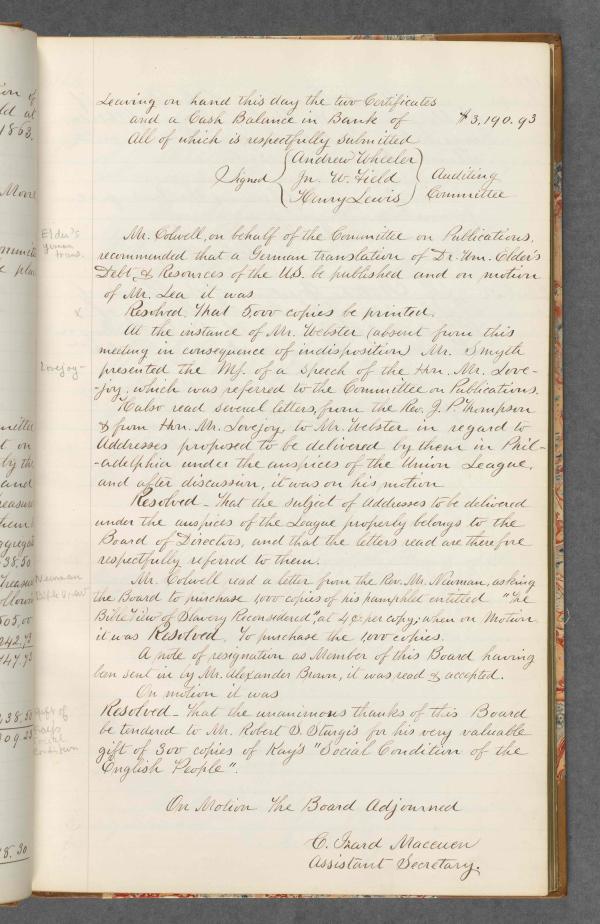 Leaving on hand this day the two Certificates
and a Cash Balance in Bank of $3,190.93
All of which is respectfully submitted
Signed { Andrew Wheeler
Jn. W. Field
Henry Lewis } Auditing Committee
Mr. Colwell, on behalf of the Committee on Publications,
recommended that a German translation of Dr. Wm. Elder's
Debt & Resources of the U.S. be published and on motion
of Mr. Lea it was
Resolved, That 5,000 copies be printed.
At the instance of Mr. Webster (absent from this
meeting in consequence of indisposition) Mr. Smyth
presented the Ms. of a speech of the Hon. Mr. Love-
-joy, which was referred to the Committee on Publications.
He also read several letters, from the Rev. J. P. Thompson
& from Hon. Mr. Lovejoy, to Mr. Webster in regard to
Addresses proposed to be delivered by them in Phil-
-adelphia under the auspices of the Union League,
and after discussion, it was on his motion
Resolved - That the subject of Addresses to be delivered
under the auspices of the League properly belongs to the
Board of Directors, and that the letters read are therefore
respectfully referred to them.
Mr. Colwell read a letter from the Rev. Mr. Newman, asking
the Board to purchase 1,000 copies of his pamphlet entitled "The
Bible View of Slavery Reconsidered", at 4 c. per copy; when on Motion
it was Resolved, To purchase the 1,000 copies.
A note of resignation as Member of this Board having
been sent in by Mr. Alexander Brown, it was read & accepted.
On motion it was
Resolved - That the unanimous thanks of this Board
be tendered to Mr. Robert S. Sturgis for his very valuable
gift of 300 copies of Kay's "Social Condition of the
English People".
On Motion the Board Adjourned
C. Izard Maceuen
Assistant Secretary.
Elder's
German
trans.
x
Lovejoy-
Newman
Bible View
Gift of
Kay's
Social
Condition
1863.
38.50
505,00
242.73
747.73
238.50
509.23
8.30